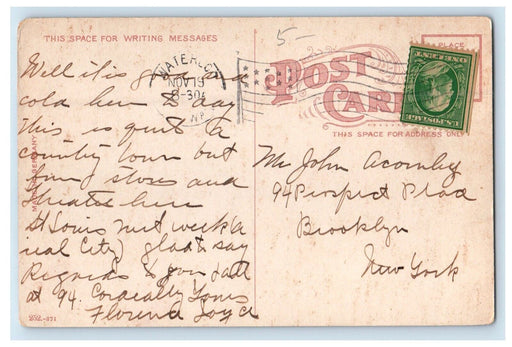 THIS SPACE FOR WRITING MESSAGES
5-
WATERLOO
NOV 19
8-30A
POST CARD
PLACE
Well it is a
cold here to day
This is quite a
country town but
fine stores and
theatre here
St Louis next week (a
real City) glad to say
Regards to you all
at 94. Cordially Yours
Florence Joyce
252.-371
THIS SPACE FOR ADDRESS ONLY
Mr John Acornley
94 Prospect Place
Brooklyn
New York
U.S. POSTAGE
ONE CENT